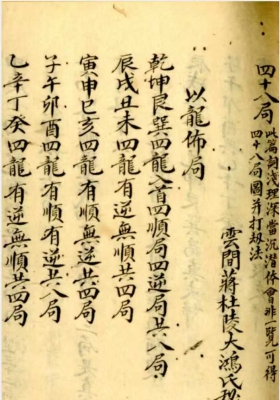 四十八局
此篇詞淺理深當沉潛体會非一覽可得
四十八局圖并打刼法
雲間蔣杜陵大鴻氏
以龍佈局
乾坤艮巽四龍之首四順局四逆局共八局
辰戌丑未四龍有逆無順共四局
寅申巳亥四龍有順無逆共四局
子午卯酉四龍有順有逆共八局
乙辛丁癸四龍有逆無順共四局